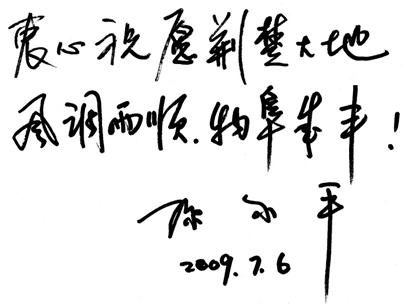 衷心祝愿荆楚大地
风调雨顺.物阜年丰!
陈永平
2009.7.6